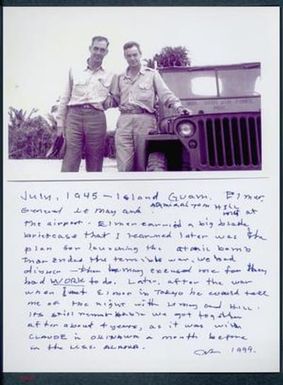 July, 1945 - Island Guam, Elmer,
General Le May and Admiral Tom Hill met at
the airport. Elmer carried a big black
briefcase that I learned later was the
plan for launching the atomic bomb
that ended the terrible war. We had
dinner - then Lemay excused me for they
had WORK to do. Later, after the war
when I met Elmer in Tokyo he would tell
me of the night with Lemay and Hill.
Its still remarkable we got together
after about 4 years, as it was with
CLAUDE in OKINAWA a month before
in the USS. ALASKA.
1999.